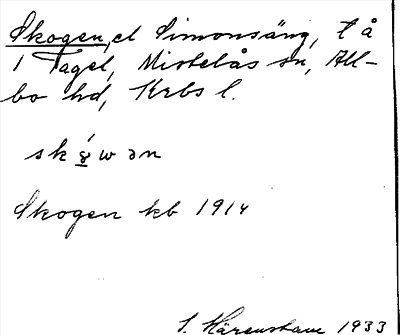 Skogen, el Simonsäng, t å
1 Tagel, Mistelås sn, All-
bo hd, Krbs l.
sk wən
Skogen kb 1914
S. Härenstam 1933